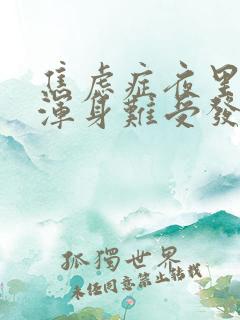 焦虑症夜里
渾身難受發
孤獨世界
未经同意禁止转载